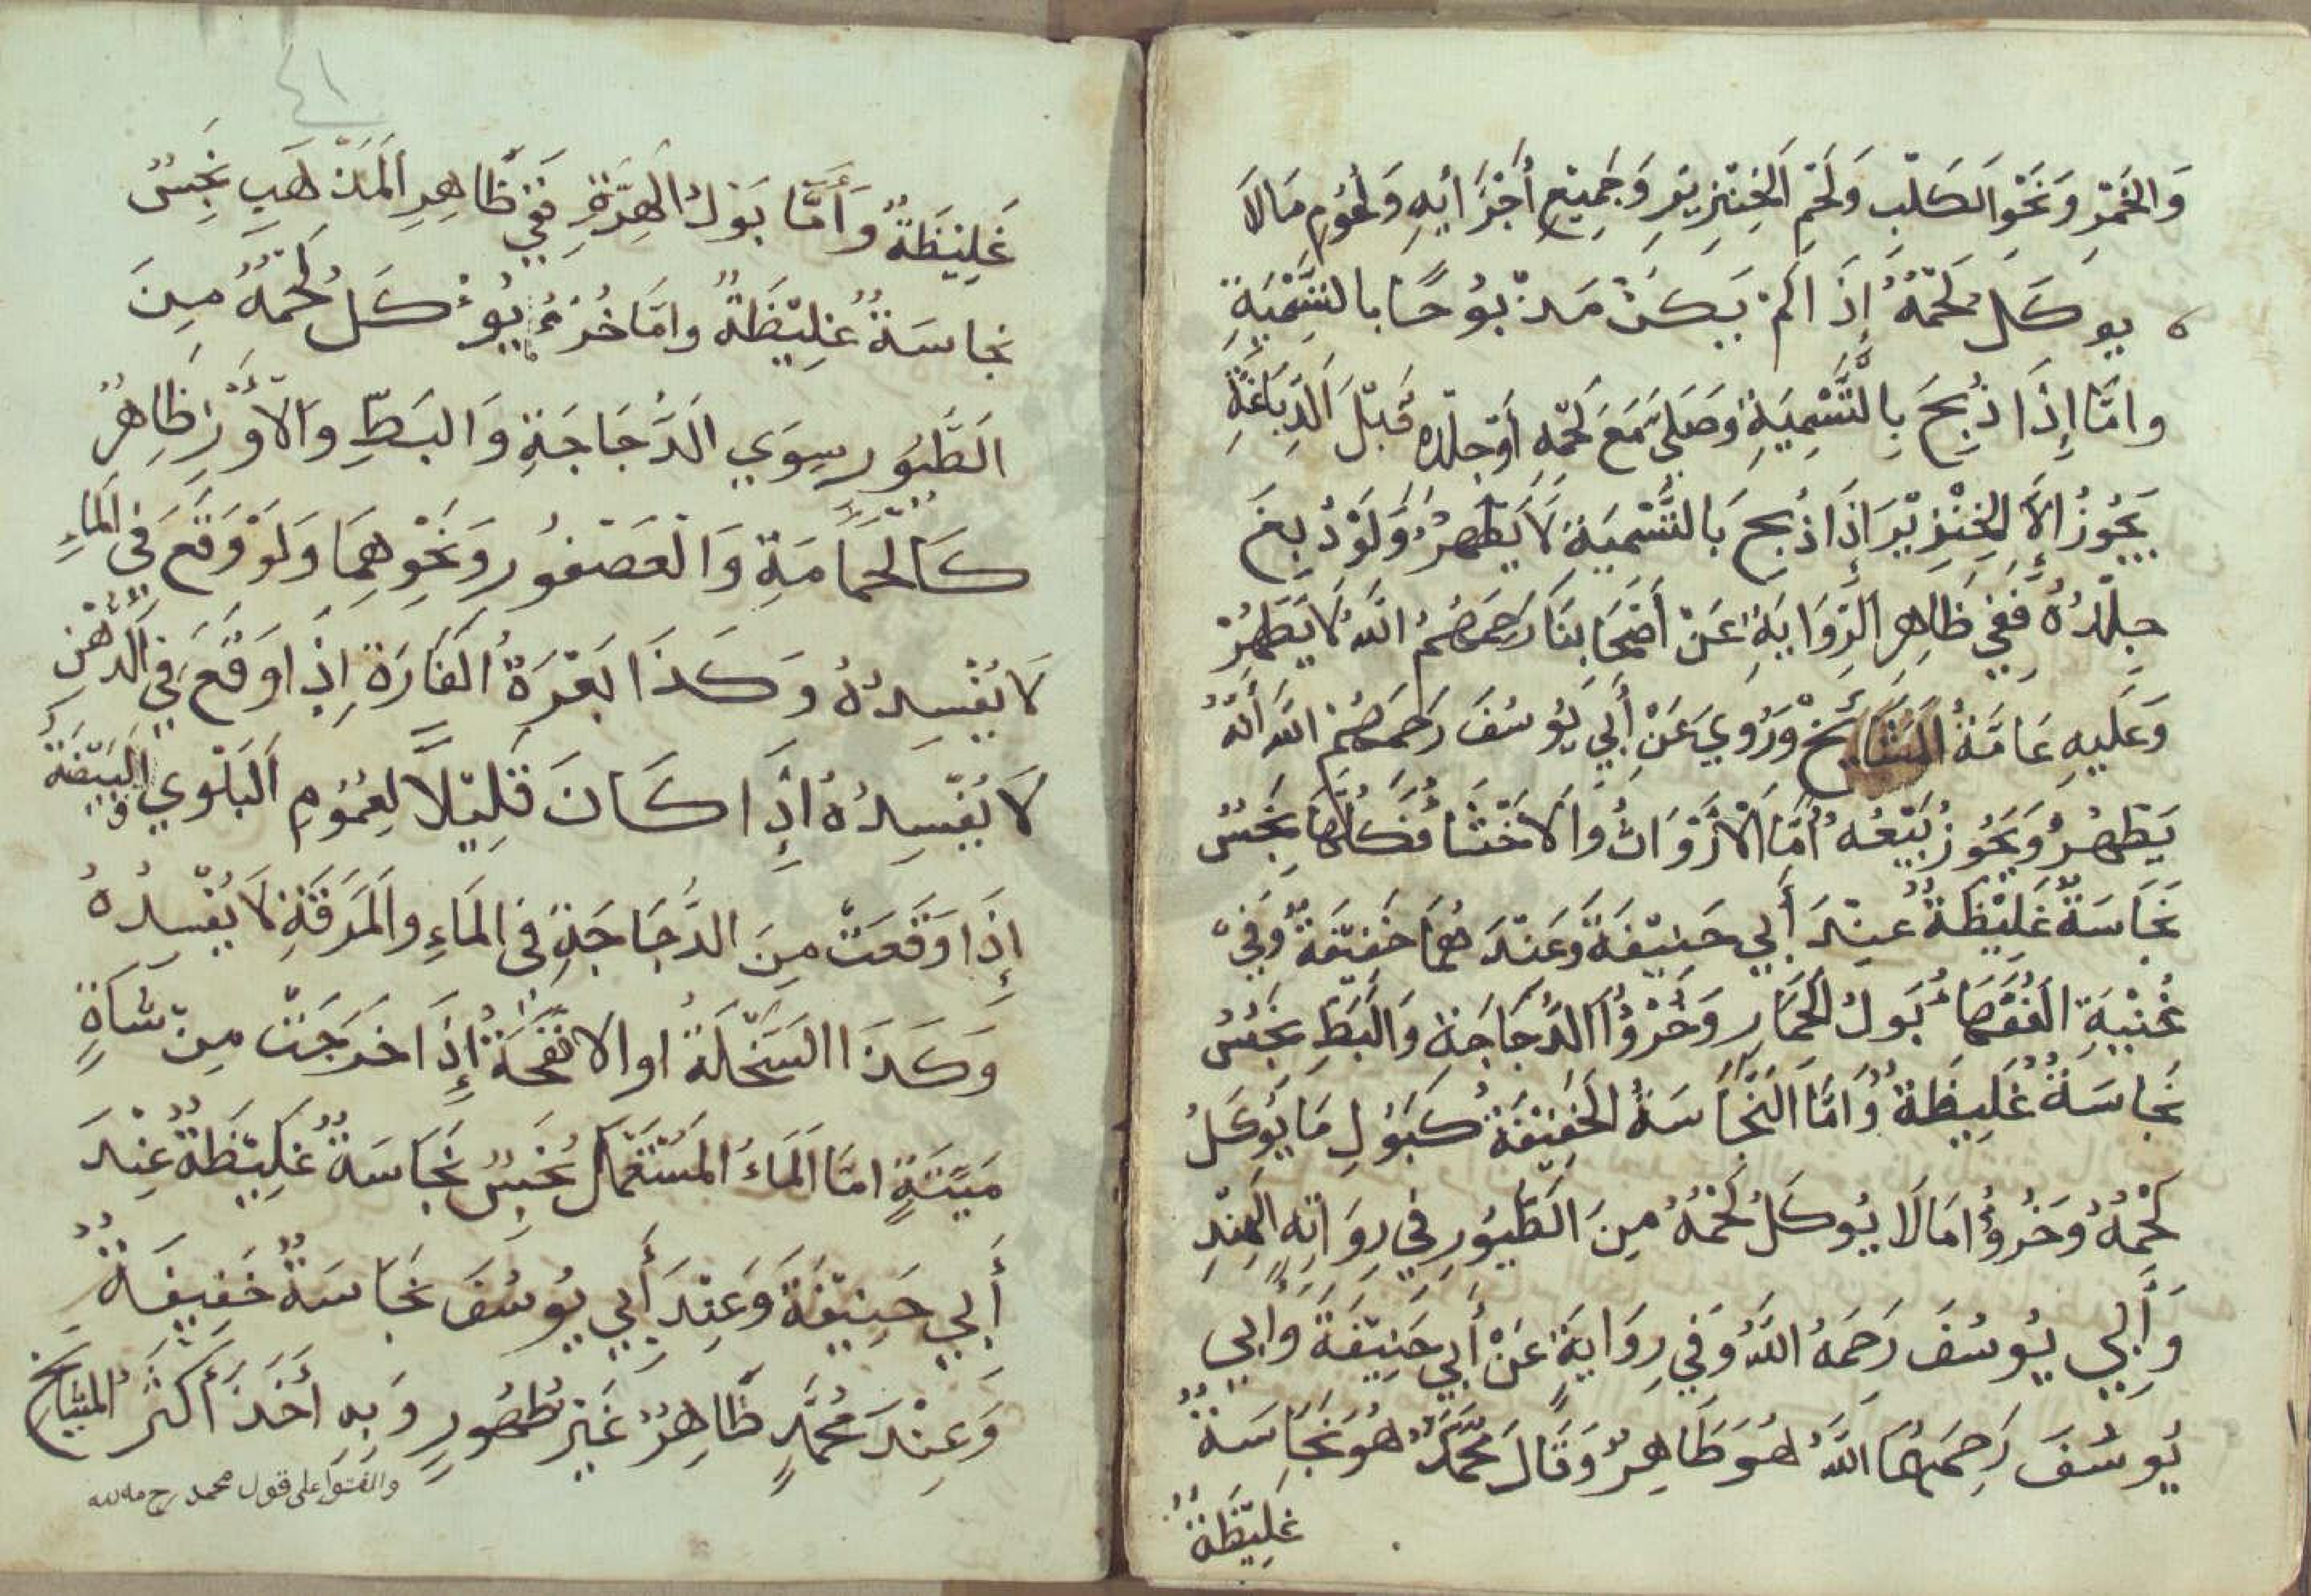 وَالخَمْرِ وَنَحْوِ الكَلْبِ وَلَحْمِ الخِنْزِيرِ وَجَمِيعِ أَجْزَائِهِ وَلُحُومِ مَالَا
يوكَلُ لَحْمُهُ إِذَا لَمْ يَكُنْ مَذْبُوحًا بالتَّسْمِيَةِ
وامَّا إِذَا ذُبِحَ بِالتَّسْمِيَةِ وَصَلَّى مَعَ لَحْمِهِ أَوْ جِلْدِهِ قَبْلَ الدِّبَاغَةِ
يَجُوزُ الَّا الخِنْزِيْرَ إِذَا ذُبِحَ بَالتَّسْمِيَةِ لَا يَطْهُرُ وَلَوْ دُبِغَ
جِلْدُهُ فَفِي ظَاهِرِ الرِّوَايَةِ عَنْ أَصْحَابِنَا رَحِمَهُمُ اللَّهُ لَا يَطْهُرْ
وَعَلَيهِ عَامَّةُ المَشَايِخْ وَرُوِيَ عَنْ أَبِي يُوسُفَ رَحِمَهُمْ اللهُ أَنَّهُ
يَطْهُرُ وَيَجُوزُ بَيْعُهُ أَمَّا الْأَرْوَاثُ وَالَاخْثَا فَكُلُّهَا نَجِسٌ
نَجَاسَةٌ غَلِيْظَةٌ عِنْدَ أَبِي حَنِيْفَةَ وَعَنْدَ هُمَا خَفِيْفَةٌ وَفِي
غُنْيَةِ الفُقَهَا بَولُ الحِمَارِ وَخُرْؤُ الدَّجَاجَةِ وَالبَطِّ نَجِسٌ
نَجاسَةٌ غَلِيظَةٌ وَامَّا النَّجَاسَةُ الخَفِيْفَةُ كَبَوْلِ مَا يُوكَلُ
لَحْمُهُ وَخُرْؤُ امَا لَا يُوكَلُ لَحْمُهُ مِنَ الطُّيُورِ فِي رِوَاتِهِ الهِنْدِ
وَأَبِي يُوسُفَ رَحِمَهُ اللَّهُ وَفِي رِوَايَةٍ عَنْ أَبِي حَنِيْفَةَ وَابِي
يُوسُفَ رَحِمَهُمَا اللَّهُ هُوَ طَاهِرٌ وَقَالَ مُحَمَّدٌ هُوَ نَجَاسَةٌ
غَلِيْظَةٌ
٤١
غَلِيْظَةٌ وَأَمَّا بَوْلُ الهِرَّةِ فَفِي ظَاهِرِ المَذْهَبِ نَجِسٌ
نجاسَةٌ غَلِيْظَةٌ وامَّا خُرْءُ يُوءْ كَلُ لَحْمُهُ مِنَ
الطُّيُورِ سِوَي الدَّجَاجَةِ وَالبَطِّ وَالْأَوَزِّ ظَاهِرٌ
كَالحَمَامَةِ وَالْعَصْفُورِ وَنَحْوِهِمَا وَلَوْ وَقَعَ فِي المَاءِ
لَا يُفْسِدُهُ وَكَذَا بَعْرَةُ الفَارَةِ إِذَا وَقَعَ فِي الدُّهْنِ
لَا يُفْسِدُهُ إِذَا كَانَ قَلِيْلًا لِعُمُومِ البَلْوِي وَالبَيْضَةُ
إِذَا وَقَعَتْ مِنَ الدَّجَاجَةِ فِي المَاءِ وَالمَرَقَةِ لَا يُفْسِدُهُ
وَكَذَا السَّخْلَةُ اوالانْفَحَةُ إِذَا خَرَجَتْ مِنْ شَاةٍ
مَيْتَةٍ امَّا المَاءُ المُسْتَعْمَلُ نَجِسٌ نَجَاسَةٌ غَلِيْظَةٌ عِنْدَ
أَبِي حَنِيْفَةَ وَعِنْدَ أَبِي يُوسُفَ نَجَاسَةٌ خَفِيفَةٌ
وَعِنْدَ مُحَمَّدٍ ظَاهِرٌ غَيْرُ طُهُورٍ وَبِهِ أَخَذَ أَكْثَرُ المَشَايخْ
والفتوا على قول محمد رحمه الله